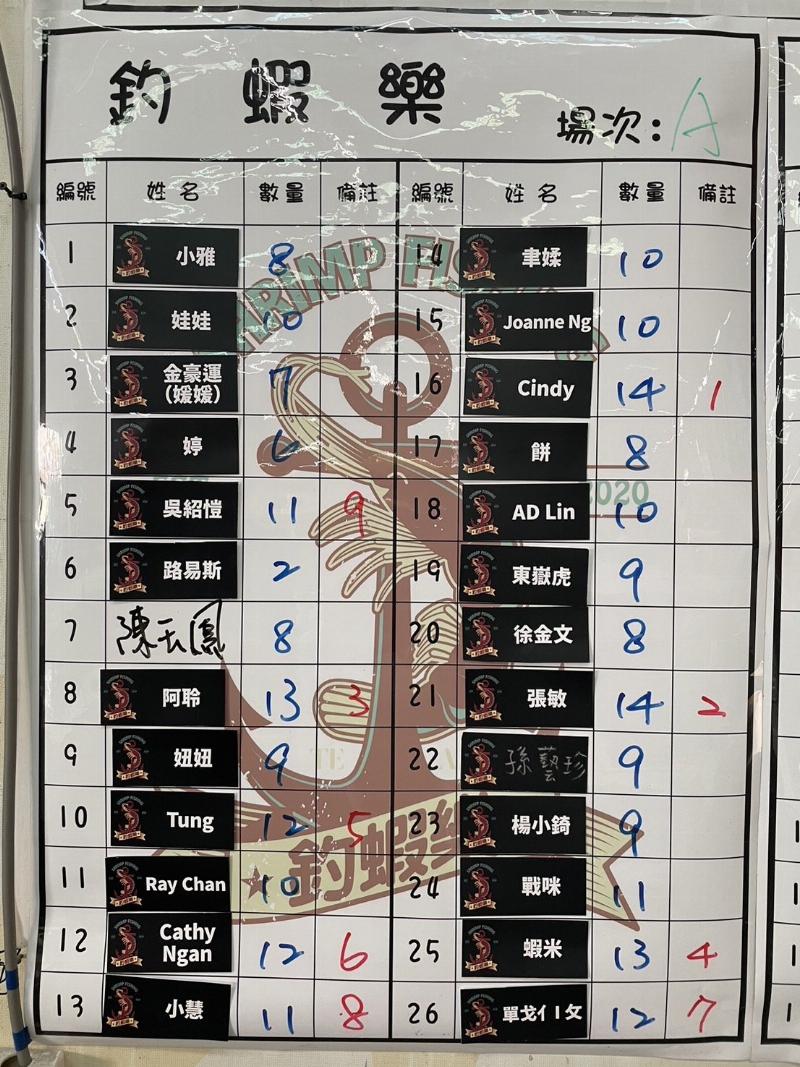 釣蝦樂
場次: A
編號 姓名 數量 備註 編號 姓名 數量 備註
1 小雅 8 14 聿媃 10
2 娃娃 10 15 Joanne Ng 10
3 金豪運 (媛媛) 7 16 Cindy 14 1
4 婷 6 17 餅 8
5 吳紹愷 11 9 18 AD Lin 10
6 路易斯 2 19 東嶽虎 9
7 陳玉鳳 8 20 徐金文 8
8 阿聆 13 3 21 張敏 14 2
9 妞妞 9 22 孫藝珍 9
10 Tung 12 5 23 楊小錡 9
11 Ray Chan 10 24 戰咪 11
12 Cathy Ngan 12 6 25 蝦米 13 4
13 小慧 11 8 26 單戈亻丨攵 12 7
SHRIMP FIS
2020
釣蝦樂